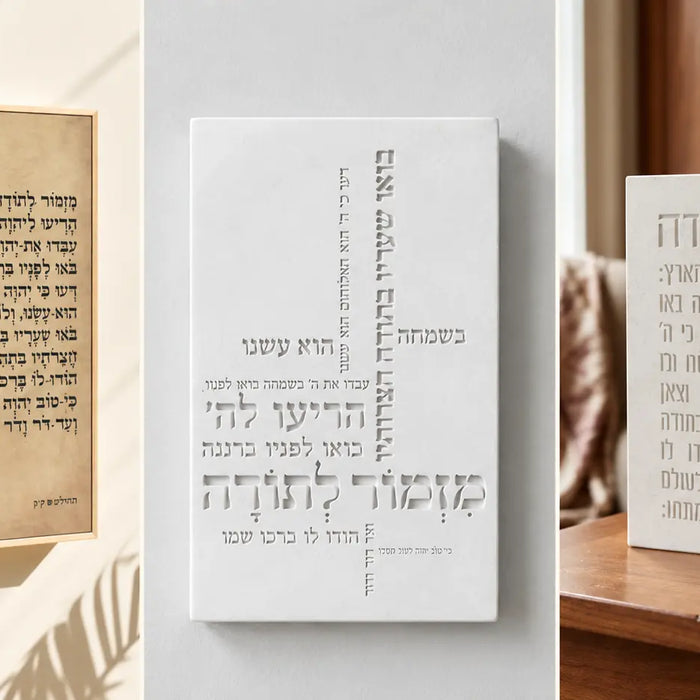 מִזְמוֹר לְתוֹדָ
הָרִיעוּ לַיהוָ
עִבְדוּ אֶת-יְהוָ
בֹּאוּ לְפָנָיו בִּרְ
דְּעוּ כִּי יְהוָה
הוּא-עָשָׂנוּ, וְלֹ
בֹּאוּ שְׁעָרָיו
חֲצֵרֹתָיו בִּתְהִ
הוֹדוּ-לוֹ בָּרְכ
כִּי-טוֹב יְהוָה
וְעַד-דֹּר וָדֹר
בואו שעריו בתודה חצרותיו
דעו כי ה' הוא האלוהים הוא עשנו
בשמחה
הוא עשנו
עבדו את ה' בשמחה בואו לפניו
הריעו לה'
בואו לפניו ברננה
מִזְמוֹר לְתוֹדָה
הודו לו ברכו שמו
ועד דור ודור
כי טוב יהוה לעולם חסדו
דה
הארץ:
באו
כי ה'
וכו
וצאן
בתודה
לו
לעולם